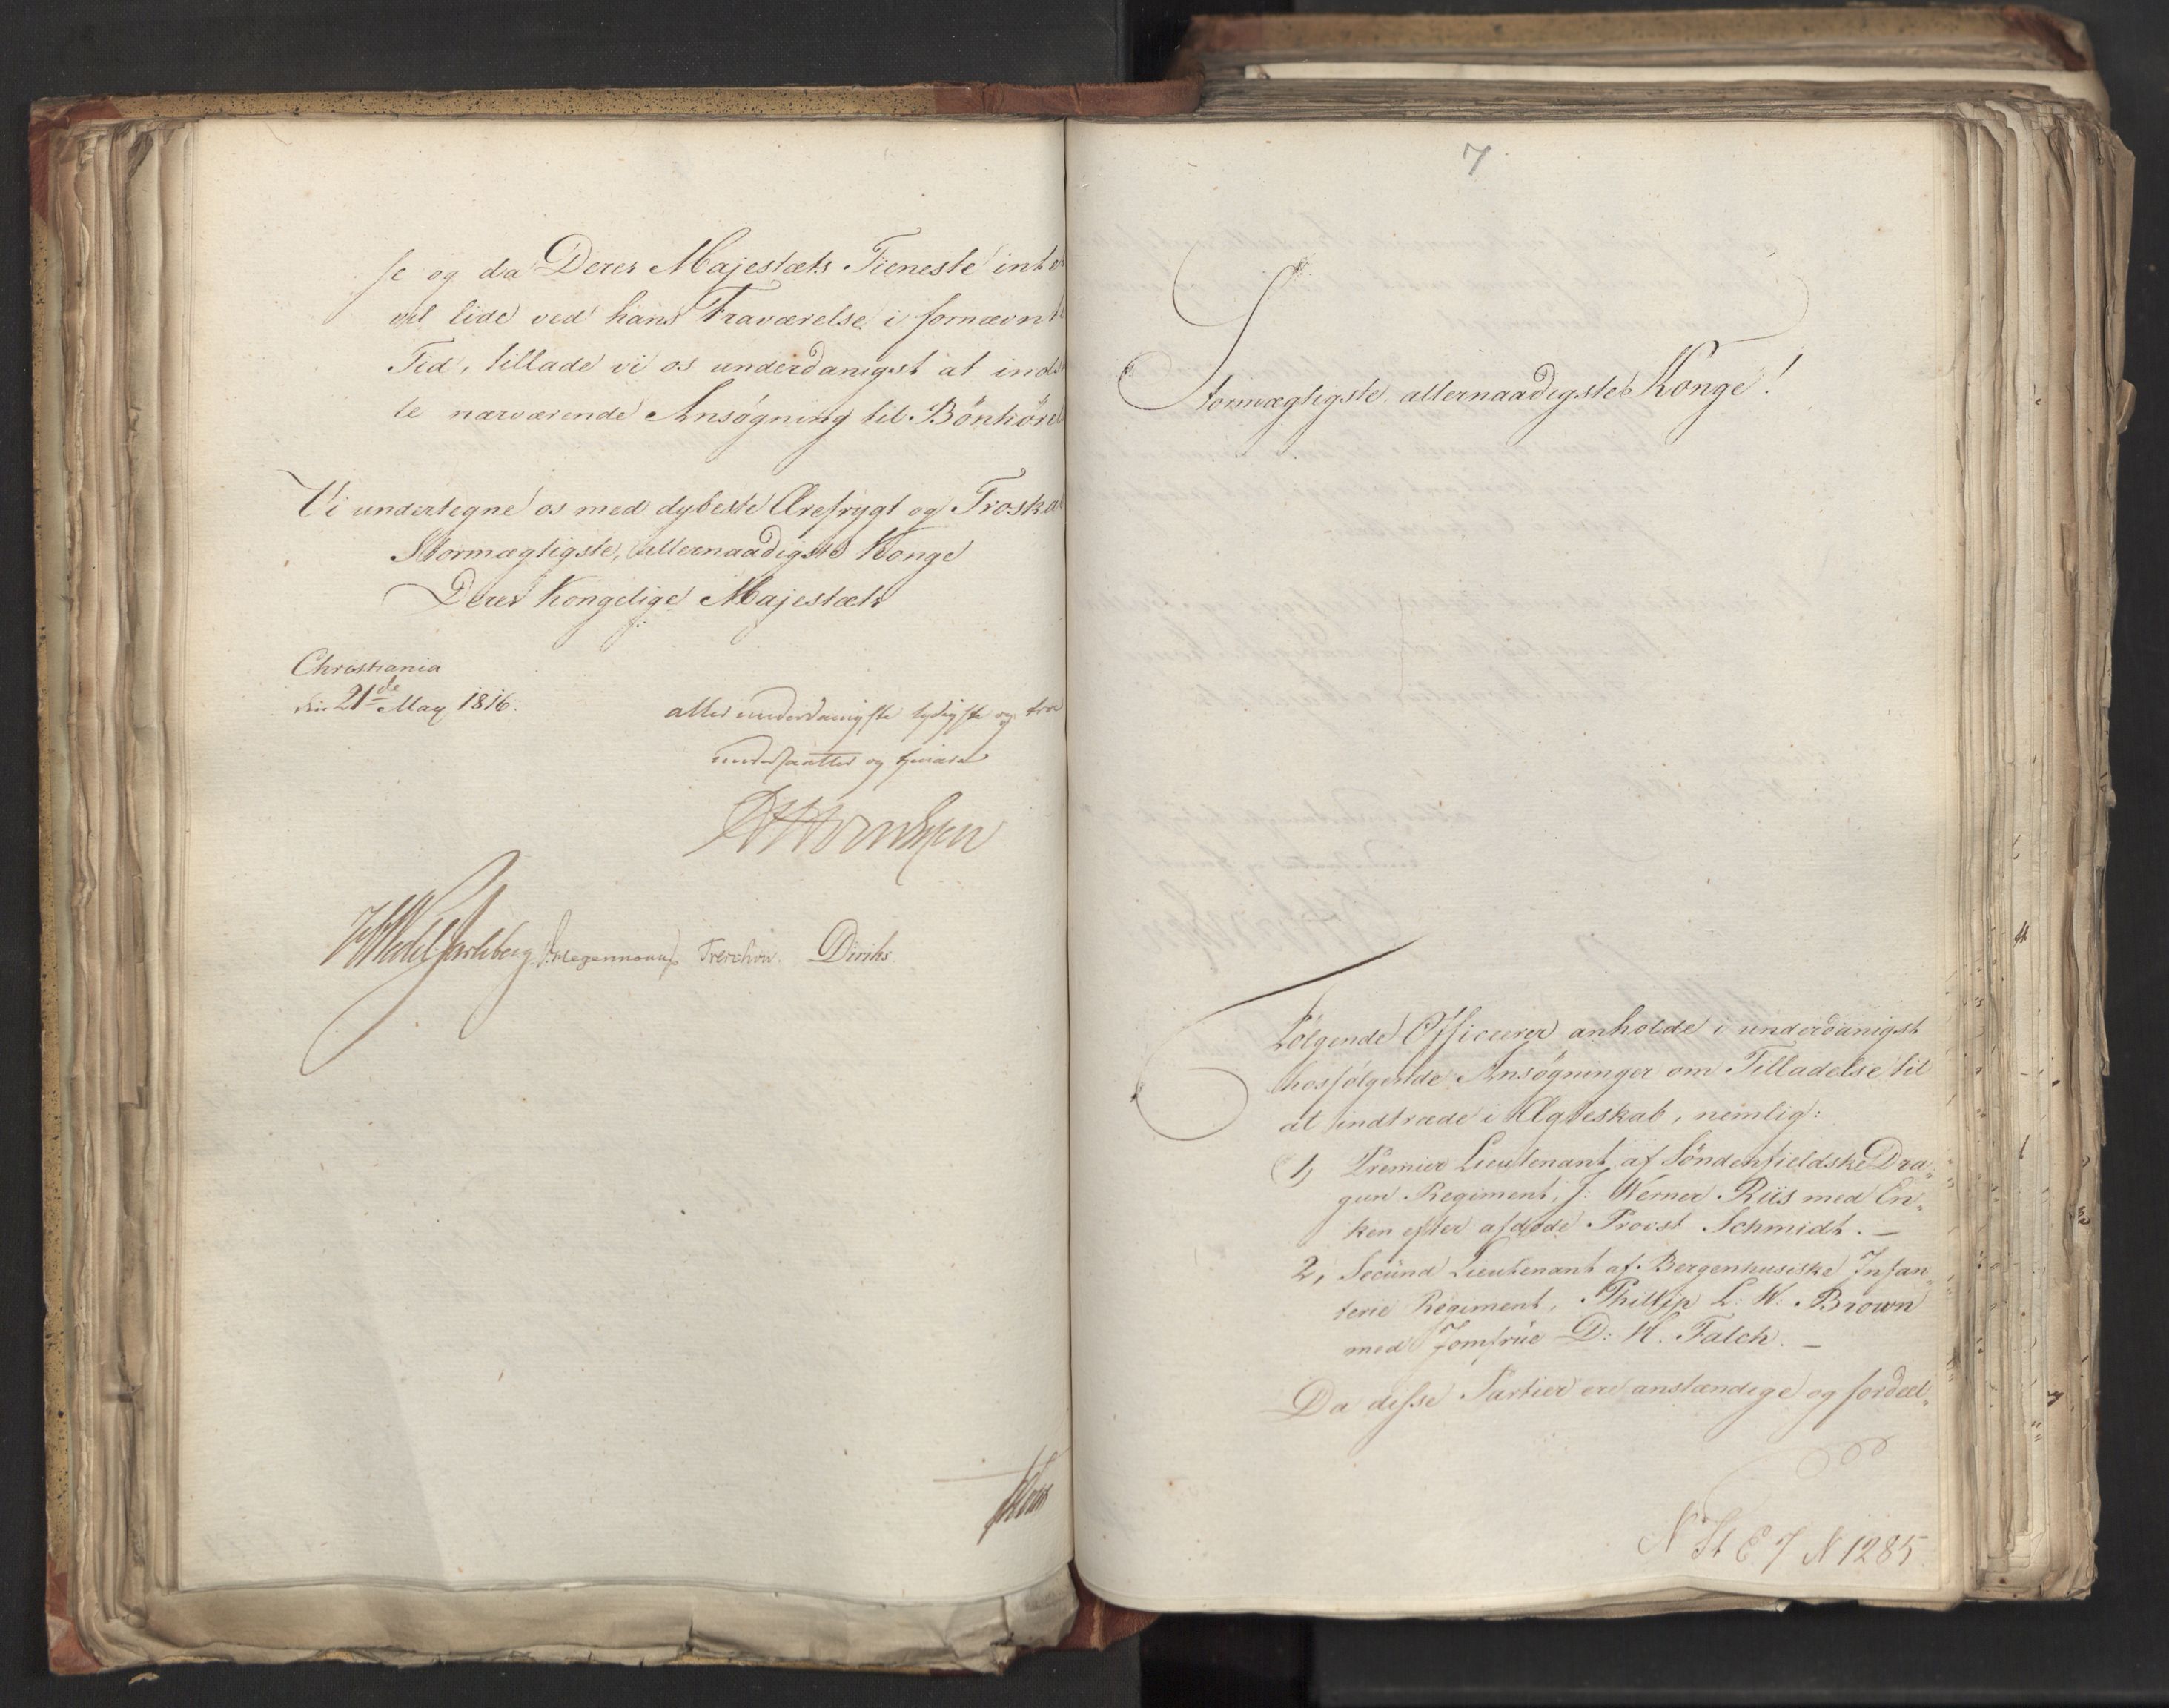 se og da Deres Majestæts Tieneste inte
vil lide ved hans Fraværelse i fornævnt
Tid, tillade vi os underdanigst at ind
te nærværende Ansøgning til Bönhöre
Vi undertegne os med dybeste Ærefrygt og Troska
Stormægtigste, allernaadigste Konge
Deres Kongelige Majestæts
Christiania
den 21de May 1816.
allerunderdanigste lydigste og troe
undersaatter og tienere
HWedel Jarlsberg Hegermann Treschow. Diriks
7
Stormægtigste, allernaadigste Konge!
Følgende Officerer anholde i underdanigst
hosfølgende Ansøgninger om Tilladelse til
at indtræde i Ægteskab, nemlig:
1, Premier Lieutenant af Söndenfieldske Dra„
gun Regiment, J: Werner Riis med En„
ken efter afdøde Provst Schmidt. —
2, Secünd Lieutenant af Bergenhusiske Infan„
terie Regiment, Phillip L: W: Brown
med Jomfrüe D: H. Falch. —
Da desse Partier ere anstændige og fordeel„
N 1285